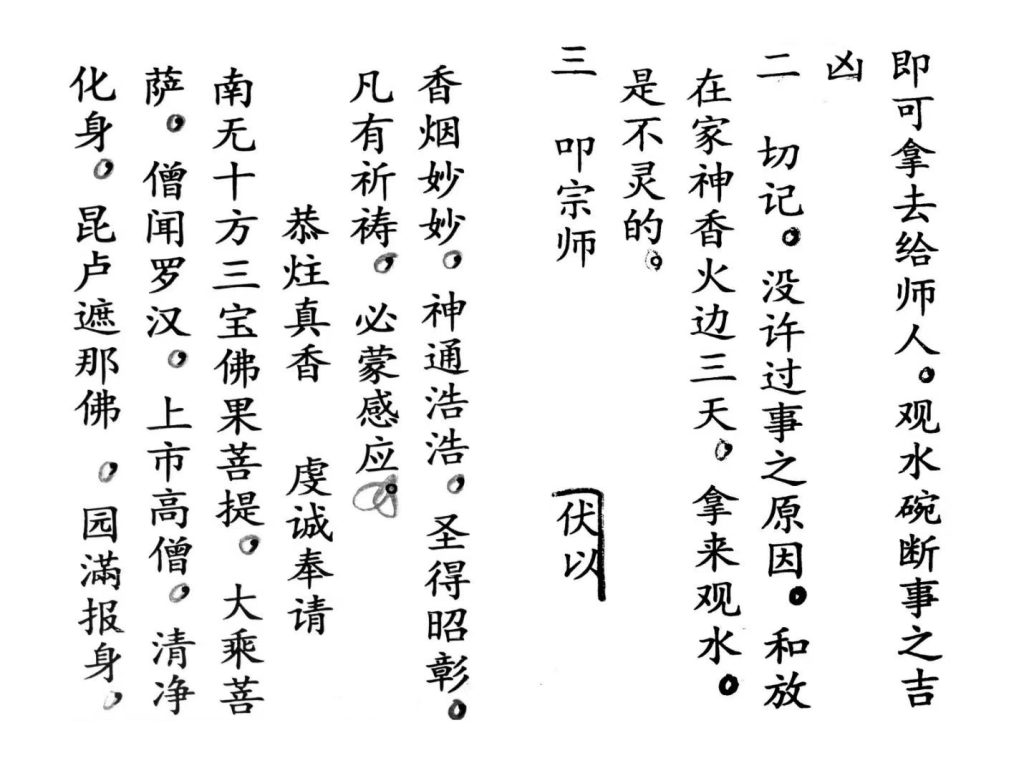 即可拿去给师人。观水碗断事之吉
凶
二 切记。没许过事之原因。和放
在家神香火边三天，拿来观水。
是不灵的。
三 叩宗师 伏以
香烟妙妙，神通浩浩，圣得昭彰。
凡有祈祷，必蒙感应。
恭炷真香 虔诚奉请
南无十方三宝佛果菩提，大乘菩
萨，僧闻罗汉，上市高僧，清净
化身，昆卢遮那佛，园满报身，